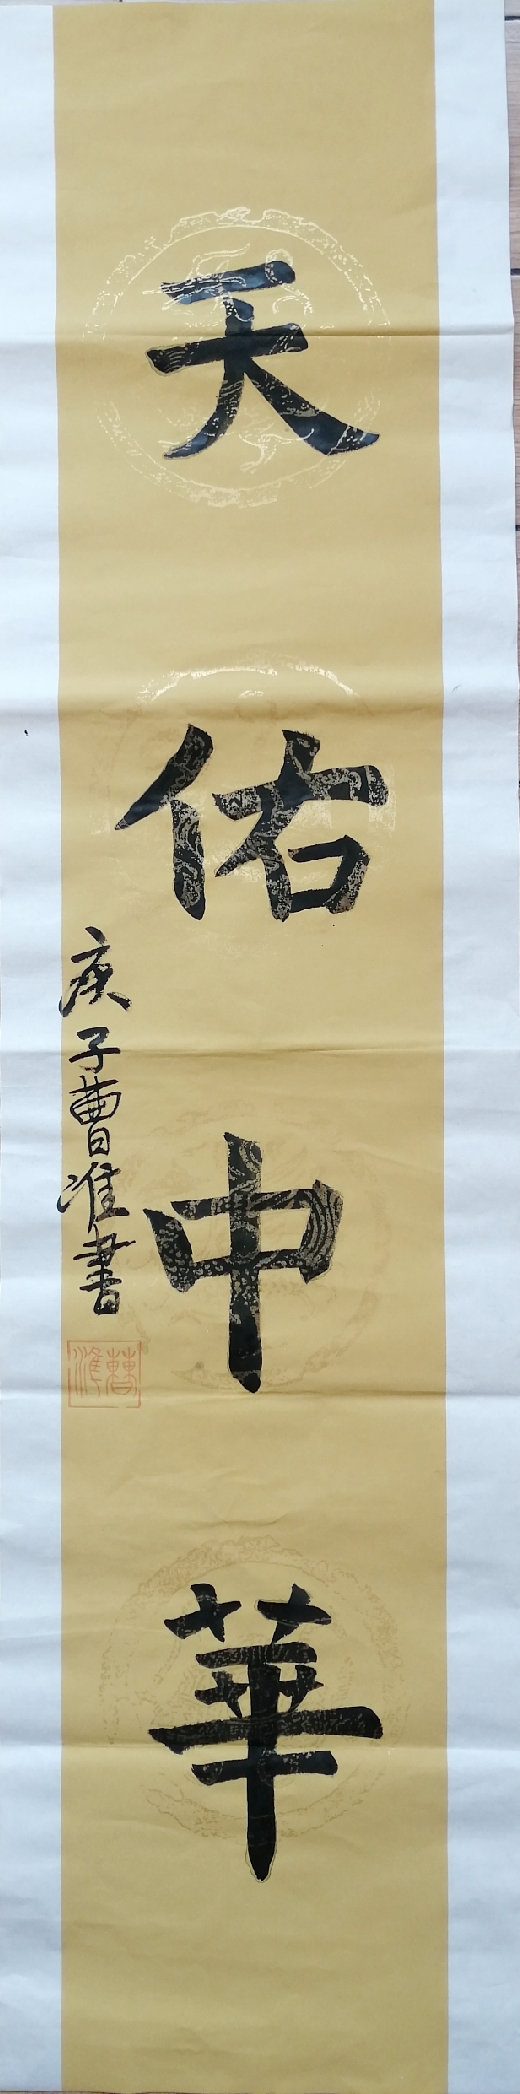 天佑中華
庚子曹淮書
曹淮